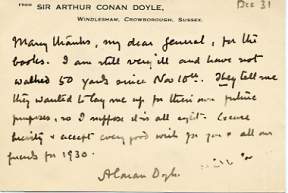 FROM SIR ARTHUR CONAN DOYLE,
WINDLESHAM, CROWBOROUGH, SUSSEX.
Dec 31
Many thanks, my dear General, for the
books. I am still very ill and have not
walked 50 yards since Nov 10th. They tell me
they wanted to lay me up for their own
purposes, so I suppose it is all right. Excuse
brevity & accept every good wish for you & all our
friends for 1930.
A Conan Doyle